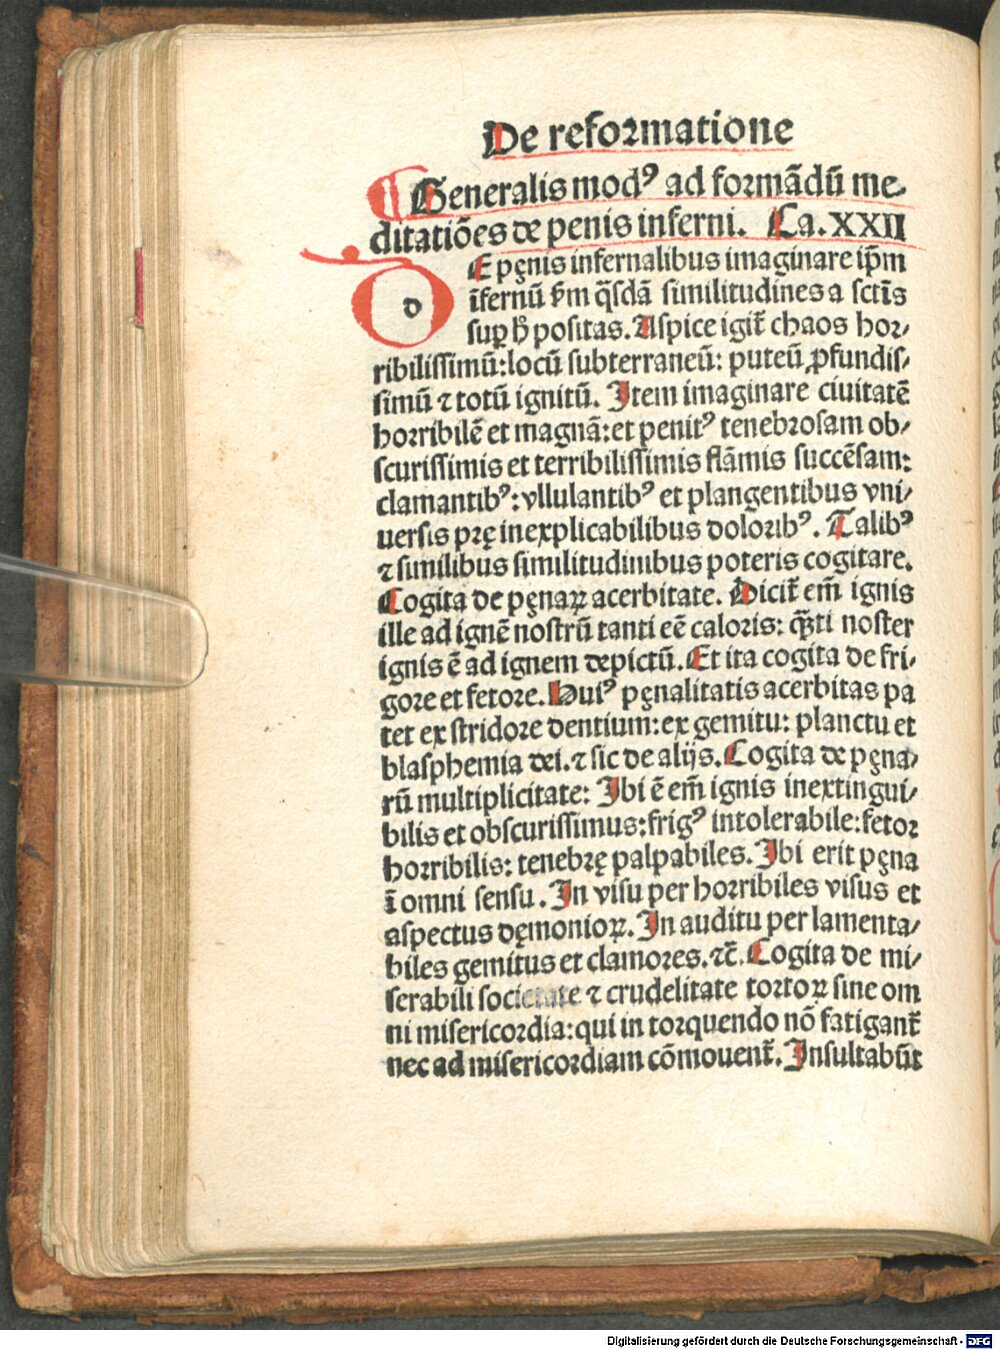 De reformatione
¶ Generalis modꝰ ad formādū me-
ditatiōes de penis inferni. Ca. XXII
d
DE pęnis infernalibus imaginare ip̄m
īfernū ẜm q̄sdā similitudines a sctīs
suꝑ h̓ positas. Aspice igit̄ chaos hor-
ribilissimū: locū subterraneū: puteū ꝓfundis-
simū ⁊ totū ignitū. Item imaginare ciuitatē
horribilē et magnā: et penitꝰ tenebrosam ob-
scurissimis et terribilissimis flāmis succēsam:
clamantibꝰ: vllulantibꝰ et plangentibus vni-
uersis prę inexplicabilibus doloribꝰ. Talibꝰ
⁊ similibus similitudinibus poteris cogitare.
Cogita de pęnaꝝ acerbitate. Dicit̄ em̄ ignis
ille ad ignē nostrū tanti eē caloris: q̄ti noster
ignis ē ad ignem depictū. Et ita cogita de fri-
gore et fetore. Huiꝰ pęnalitatis acerbitas pa
tet ex stridore dentium: ex gemitu: planctu et
blasphemia dei. ⁊ sic de alijs. Cogita de pęna-
rū multiplicitate: Ibi ē em̄ ignis inextingui-
bilis et obscurissimus: frigꝰ intolerabile: fetor
horribilis: tenebrę palpabiles. Ibi erit pęna
ī omni sensu. In visu per horribiles visus et
aspectus dęmonioꝝ. In auditu per lamenta-
biles gemitus et clamores. ⁊c̄. Cogita de mi-
serabili societate ⁊ crudelitate tortoꝝ sine om
ni misericordia: qui in torquendo nō fatigant̄
nec ad misericordiam cōmouent̄. Insultabūt
Digitalisierung gefördert durch die Deutsche Forschungsgemeinschaft - DFG